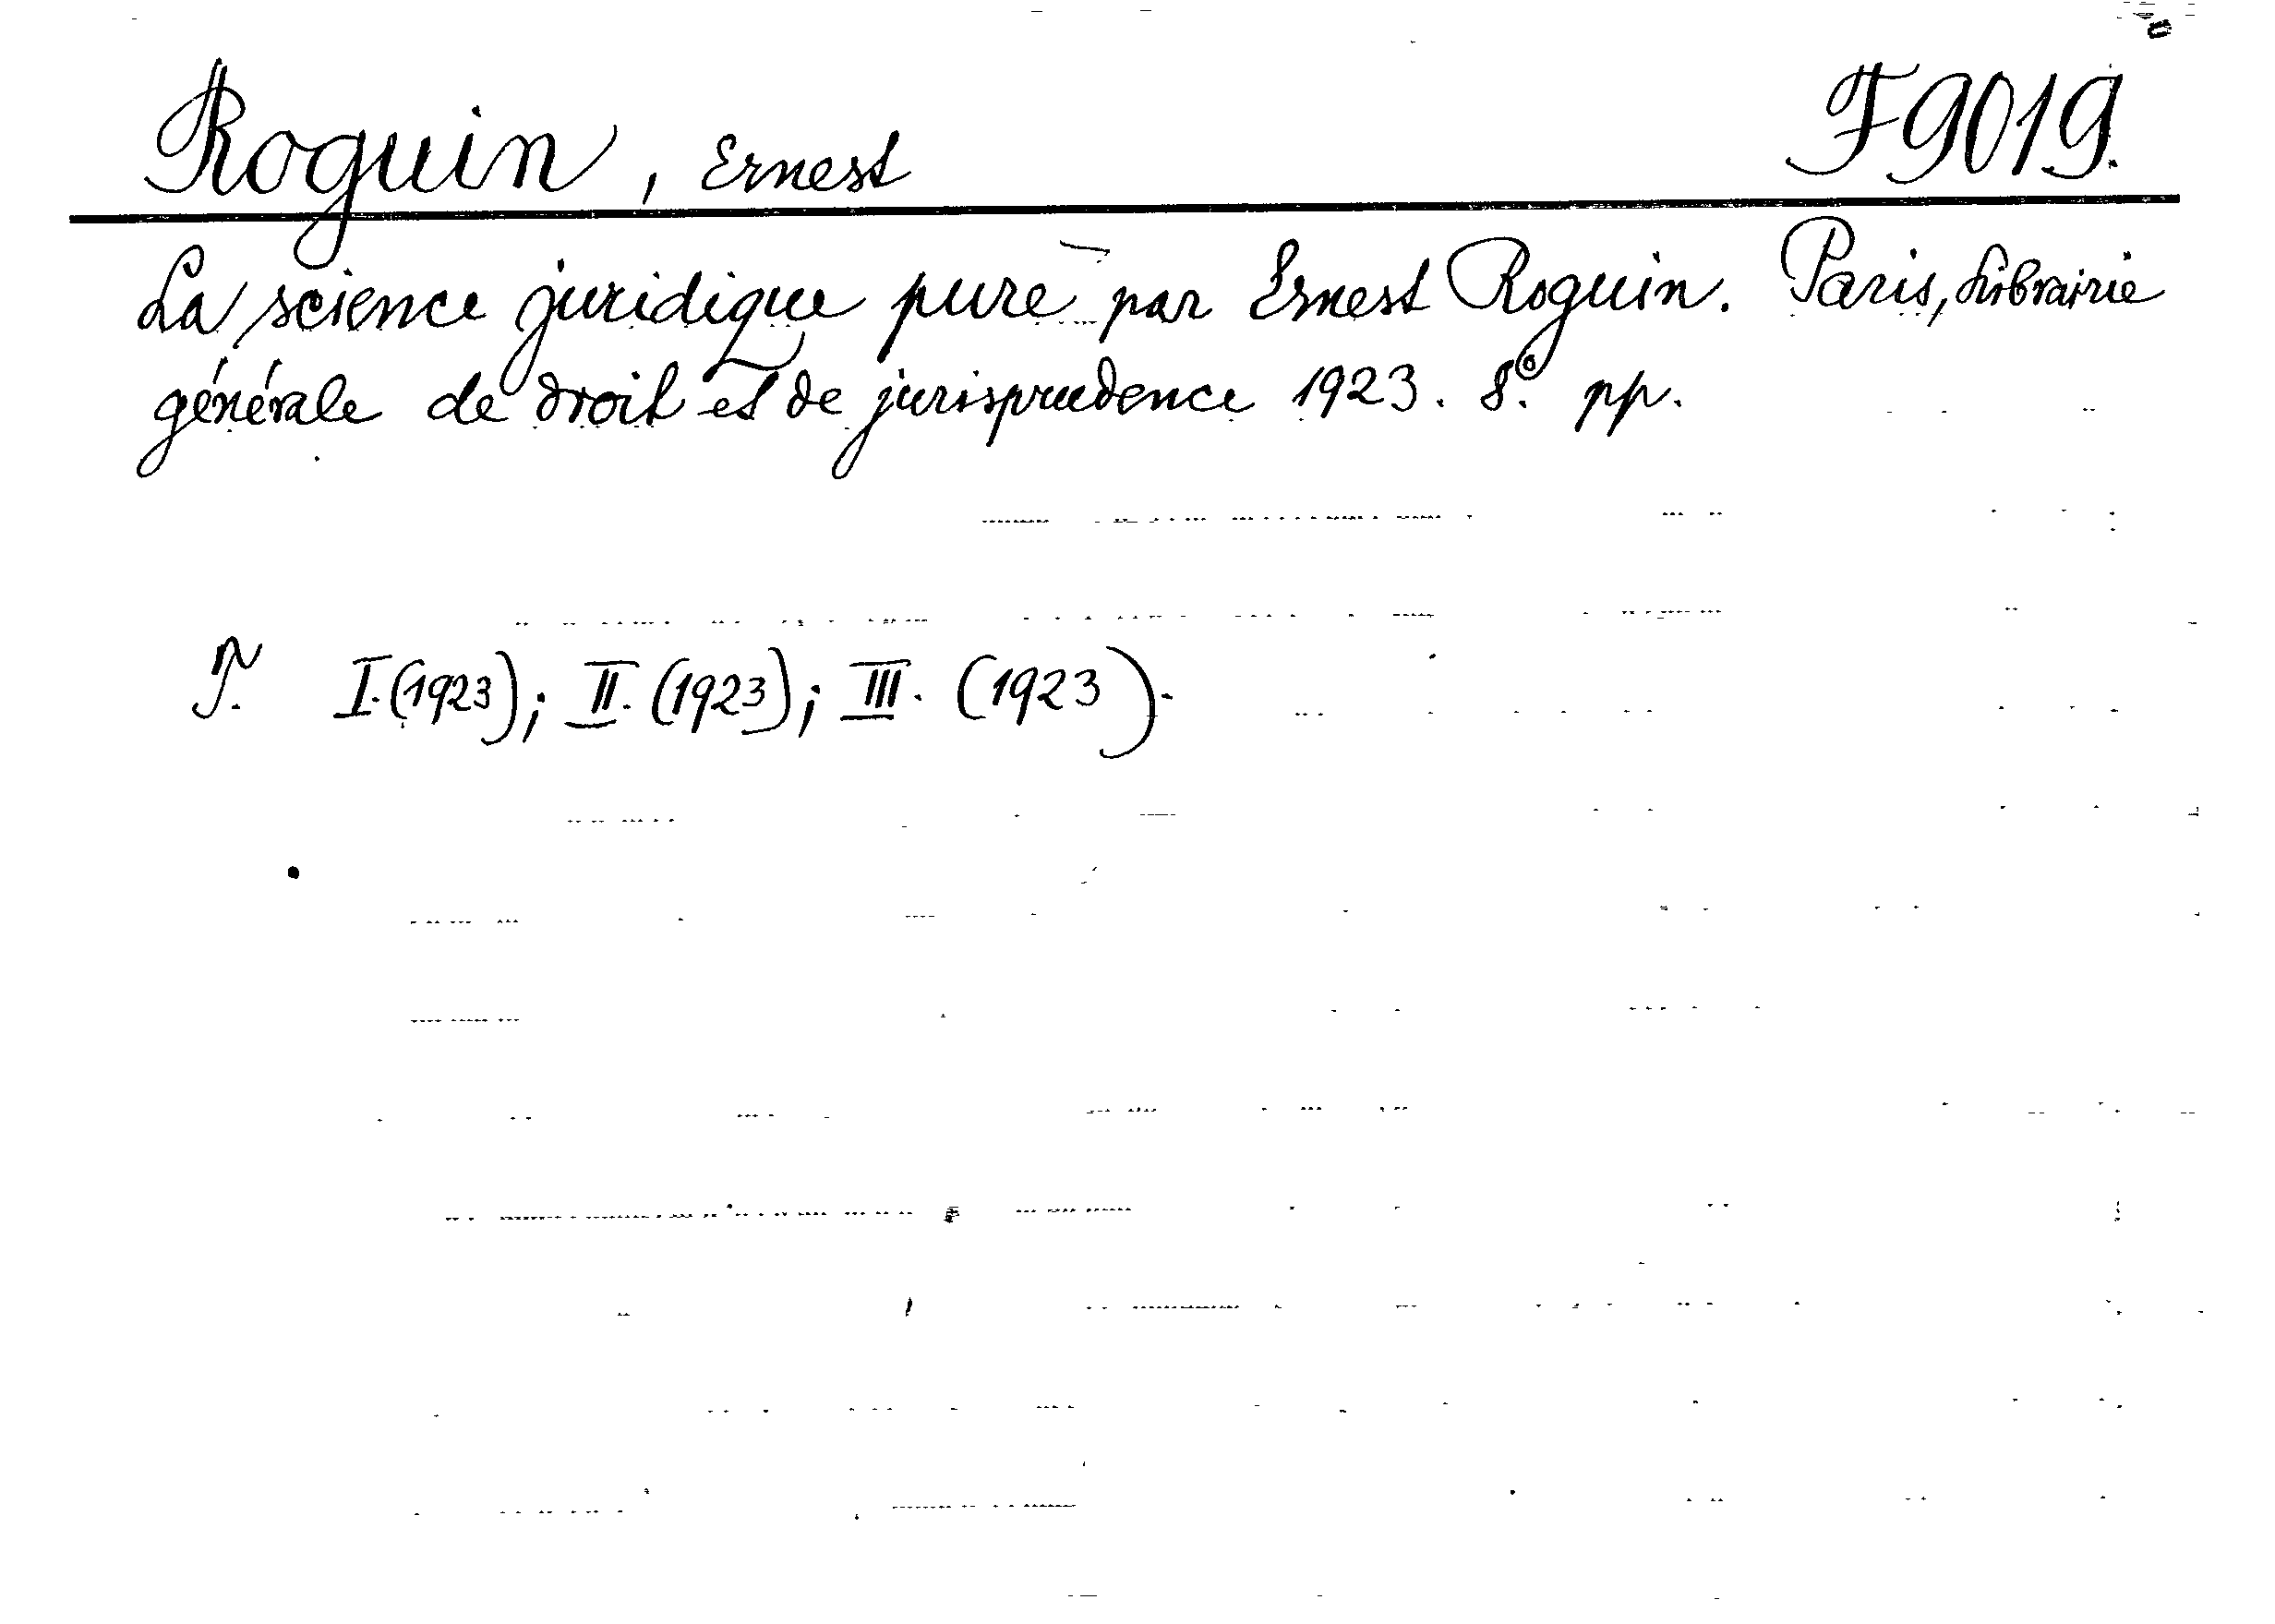 Roguin, Ernest F9019.
La science juridique pure par Ernest Roguin. Paris, Librairie
générale de droit et de jurisprudence 1923. 8º. pp.
T. I. (1923); II. (1923); III. (1923).